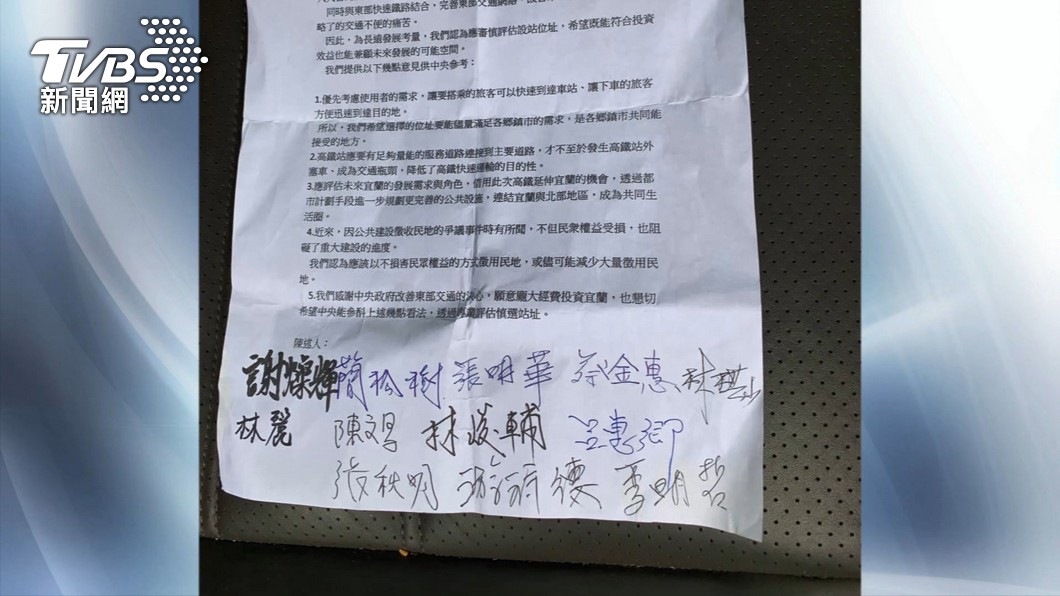 TVBS
新聞網
同時與東部快速鐵路結合，完善東部交通網絡
略了的交通不便的痛苦。
因此，為長遠發展考量，我們認為應審慎評估設站位址，希望既能符合投資
效益也能兼顧未來發展的可能空間。
我們提供以下幾點意見供中央參考：
1.優先考慮使用者的需求，讓要搭乘的旅客可以快速到達車站、讓下車的旅客
方便迅速到達目的地。
所以，我們希望選擇的位址要能儘量滿足各鄉鎮市的需求，是各鄉鎮市共同能
接受的地方。
2.高鐵站應要有足夠量能的服務道路連接到主要道路，才不至於發生高鐵站外
塞車、成為交通瓶頸，降低了高鐵快速運輸的目的性。
3.應評估未來宜蘭的發展需求與角色，借用此次高鐵延伸宜蘭的機會，透過都
市計劃手段進一步規劃更完善的公共設施，連結宜蘭與北部地區，成為共同生
活圈。
4.近來，因公共建設徵收民地的爭議事件時有所聞，不但民衆權益受損，也阻
礙了重大建設的進度。
我們認為應該以不損害民眾權益的方式徵用民地，或儘可能減少大量徵用民
地。
5.我們感謝中央政府改善東部交通的決心，願意龐大經費投資宜蘭，也懇切
希望中央能參酌上述幾點看法，透過專業評估慎選站址。
陳述人：
謝燦輝 簡松樹 張明華 蔡金惠 林棋山
林麗 陳文昌 林峻輔 呂惠卿
張秋明 游 德 李明哲